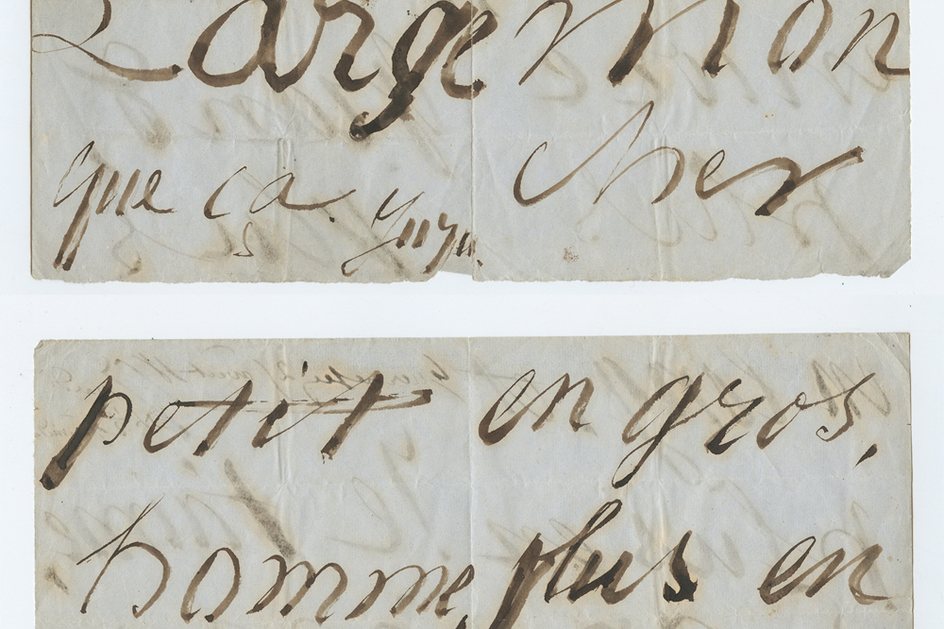 Large mon
que ca. cher
petit en gros,
homme, plus en